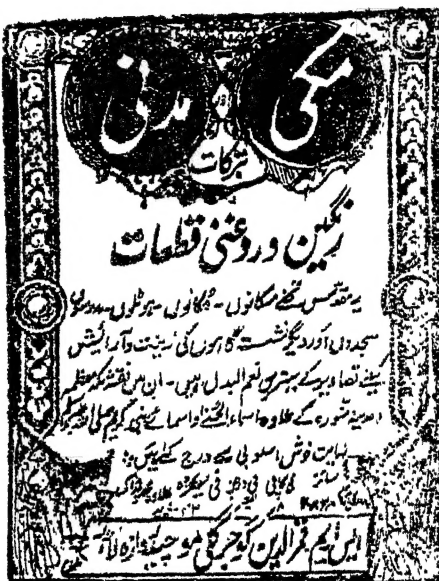 مکی اور مدنی
تبرکات
رنگین و روغنی قطعات
یہ مقدس تحفے مکانوں۔ دوکانوں۔ ہوٹلوں۔ مدرسوں
مسجدوں اور دیگر نشست گاہوں کی زینت و آرائش
کیلئے تصاویر کے بہترین نعم البدل ہیں۔ ان میں نقشہ مکہ معظمہ
مدینہ منورہ کے علاوہ اسماء الحسنے و اسمائے نبی کریم صلی اللہ علیہ وسلم
نہایت خوش اسلوبی سے درج کئے گئے ہیں
سائز فی کاپی فی سیکڑہ علاوہ محصول ڈاک
ایس ایم قمرالدین کوجہ گلی موچی دروازہ لاہور